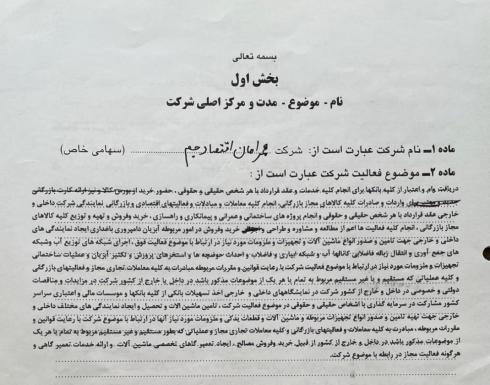 بسمه تعالی
بخش اول
نام - موضوع - مدت و مرکز اصلی شرکت
ماده 1ـ نام شرکت عبارت است از: شرکت اقتصاد جم (سهامی خاص)
ماده 2ـ موضوع فعالیت شرکت عبارت است از :
دریافت وام و اعتبار از کلیه بانکها برای انجام کلیه خدمات و عقد قرارداد با هر شخص حقیقی و حقوقی ، حضور خرید از بورس کالا و نیز ارائه کارت بازرگانی
واردات و صادرات کلیه کالاهای مجاز بازرگانی ، انجام کلیه معاملات و مبادلات و فعالیتهای اقتصادی و بازرگانی نمایندگی شرکت داخلی و
خارجی عقد قرارداد با هر شخص حقیقی و حقوقی و انجام پروژه های ساختمانی و عمرانی و پیمانکاری و راهسازی ، خرید و فروش و تهیه و توزیع کلیه کالاهای
مجاز بازرگانی ، انجام کلیه فعالیت ها اعم از مطالعه و مشاوره و طراحی خرید و فروش در امور مربوطه آبزیان دامپروری باغداری ایجاد نمایندگی های
داخلی و خارجی جهت تامین و صدور انواع ماشین آلات و تجهیزات و ملزومات مورد نیاز در ارتباط با موضوع فعالیت فوق ، اجرای شبکه های توزیع آب و شبکه
های جمع آوری و انتقال زباله فاضلابی کانالها آب و شبکه آبیاری و فاضلاب و احداث حوضچه ها و استخرهای پرورش و تکثیر آبزیان و عملیات ساختمانی
و تجهیزات و ملزومات مورد نیاز در ارتباط با موضوع فعالیت شرکت با رعایت قوانین و مقررات مربوطه مبادرت به کلیه معاملات تجاری مجاز و فعالیتهای بازرگانی
و کلیه عملیاتی که مستقیم و یا غیر مستقیم مربوط به تمام یا هر یک از موضوعات مذکور باشد در داخل یا خارج از کشور شرکت در مزایدات و مناقصات
دولتی و خصوصی در داخل و خارج از کشور شرکت در نمایشگاههای داخلی و خارجی اخذ تسهیلات بانکی از کلیه بانکها و موسسات مالی و اعتباری سراسر
کشور مشارکت در سرمایه گذاری با اشخاص حقیقی و حقوقی در موضوع فعالیت شرکت ، تامین ماشین آلات و تحصیل و ایجاد نمایندگی های مختلف داخلی و
خارجی جهت تهیه تامین و صدور انواع تجهیزات مربوطه و ماشین آلات و قطعات یدکی و ملزومات مورد نیاز آنها در ارتباط با موضوع شرکت با رعایت قوانین و
مقررات مربوطه ، مبادرت به کلیه معاملات و فعالیتهای بازرگانی و کلیه معاملات تجاری مجاز و عملیاتی که بطور مستقیم و غیر مستقیم مربوط به تمام یا هر یک
از موضوعات مذکور باشد در داخل یا خارج از کشور از قبیل خرید و فروش مصالح ، ایجاد تعمیر گاهای تخصصی ماشین آلات و ارائه خدمات تعمیر گاهی و
هرگونه فعالیت مجاز در رابطه با موضوع شرکت.